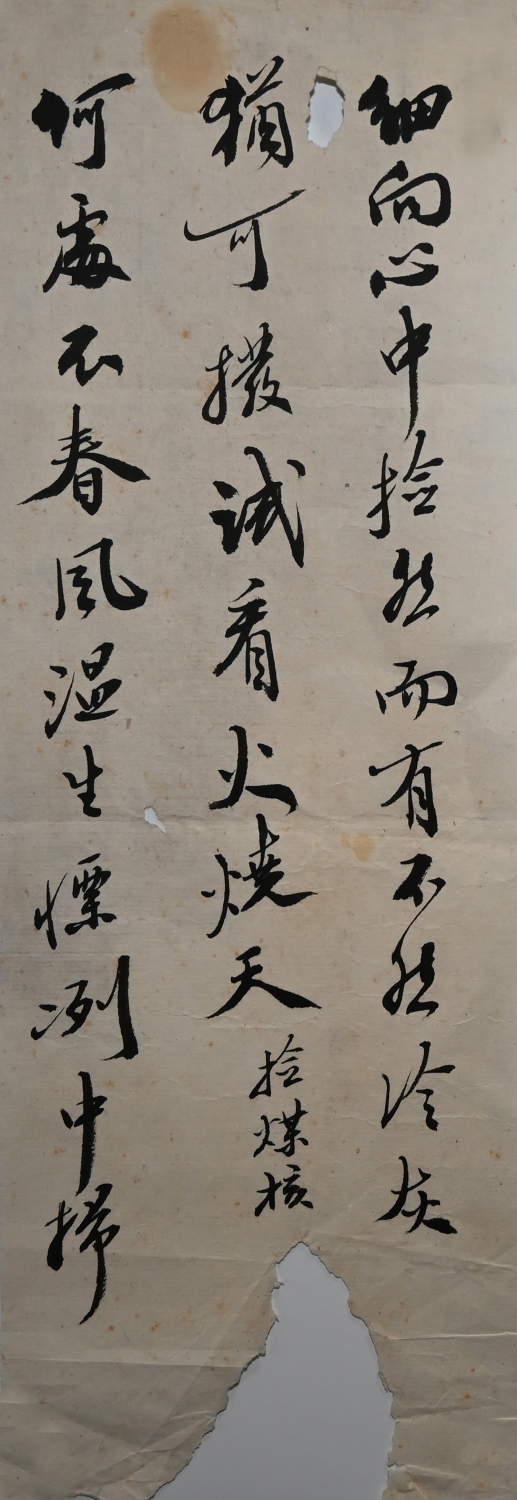 細向心中捡然而有不然冷灰
猶可撥試看火燒天
捡煤核
何處不春風温生慄冽中掃